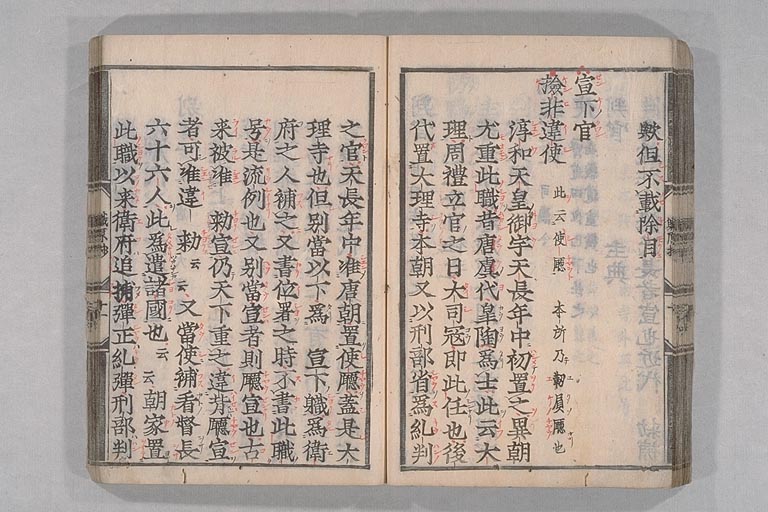 歟但不載除目
宣下官
撿非違使 此云使廳 本所乃靭負廳也
淳和天皇御宇天長年中初置之異朝
尤重此職者唐虞代皐陶爲士此云大
理周禮立官之日大司冦即此任也後
代置大理寺本朝又以刑部省爲糺判
之官天長年中准唐朝置使廳蓋是大
理寺也但別當以下爲 宣下職爲衛
府之人補之又書位署之時不書此職
号是流例也又別當宣者則廳宣也古
来被准 勅宣仍天下重之違背廳宣
者可准違 勅云云又當使補看督長
六十六人此爲遣諸國也云云朝家置
此職以来衛府追捕彈正糺彈刑部判